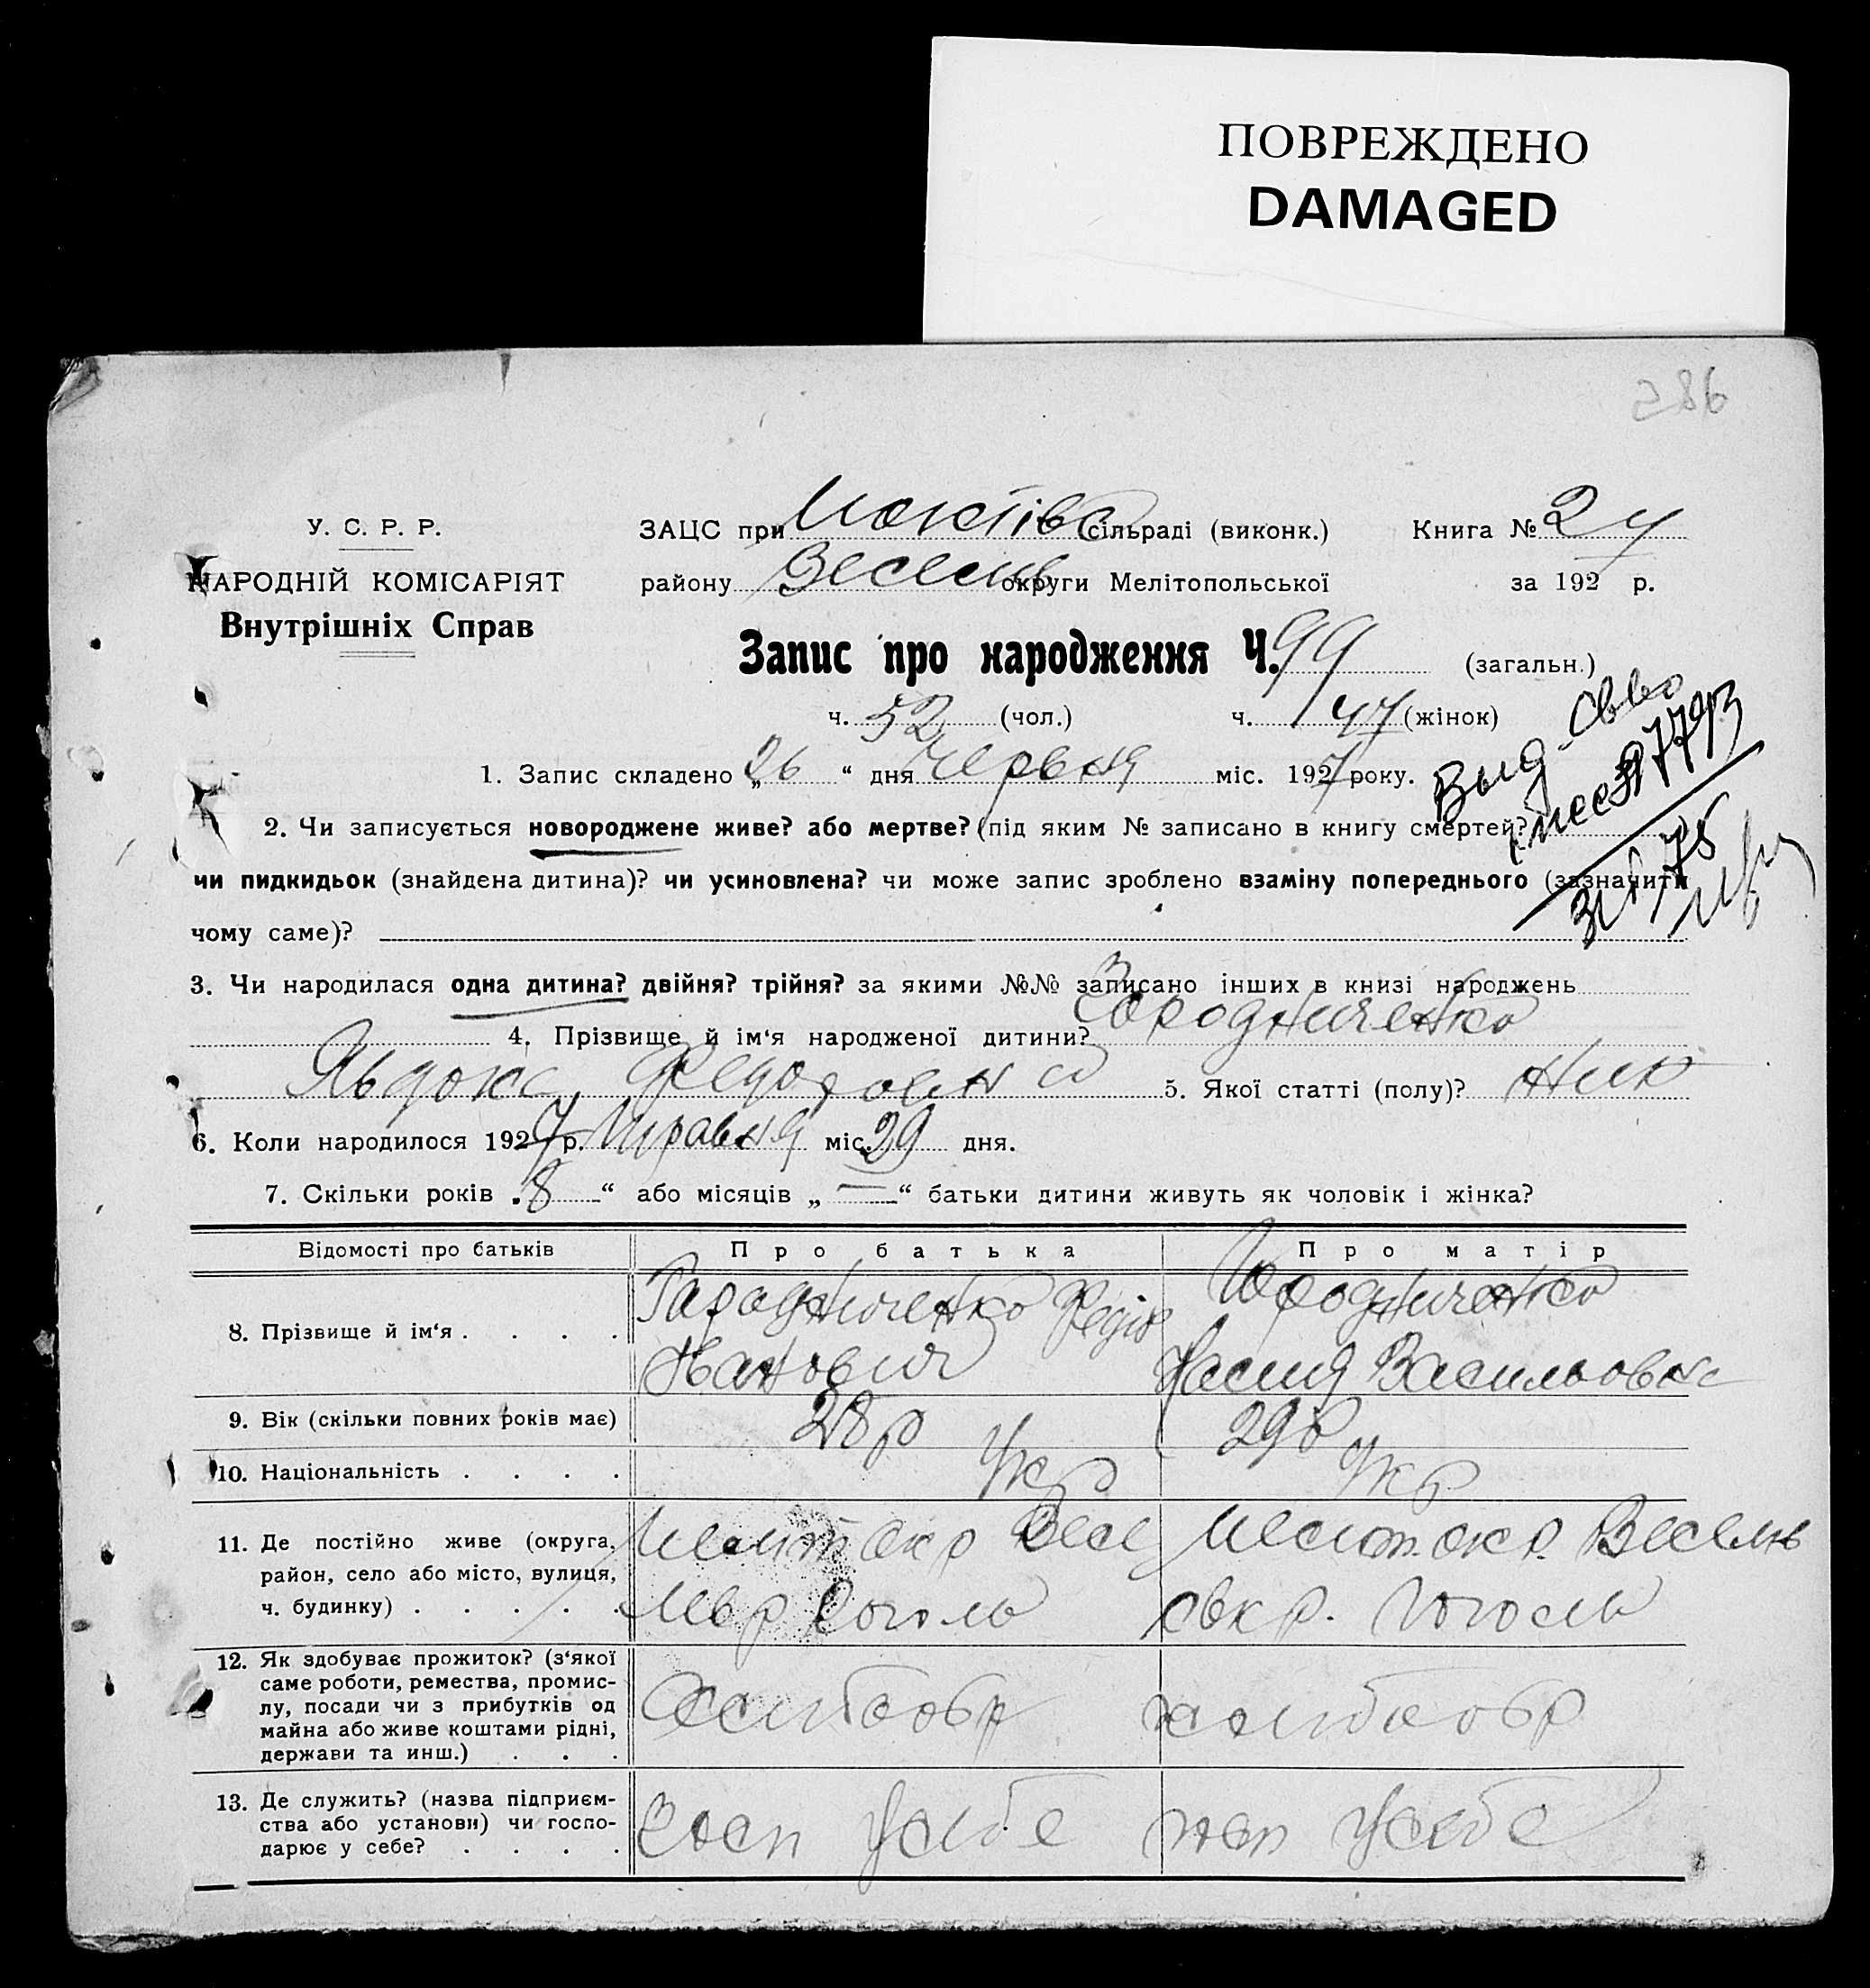 ПОВРЕЖДЕНО
DAMAGED
586
У. С. Р. Р.
НАРОДНІЙ КОМІСАРІЯТ
Внутрішніх Справ
ЗАЦС при сільраді (виконк.)
Книга № 24
району Веселів округи Мелітопольської
за 192 р.
Запис про народження Ч. 99 (загальн.)
ч. 52 (чол.) ч. 47 (жінок)
1. Запис складено „26“ дня Червня міс. 1927 року.
2. Чи записується новороджене живе? або мертве? (під яким № записано в книгу смертей?
чи пидкидьок (знайдена дитина)? чи усиновлена? чи може запис зроблено взаміну попереднього (зазначити
чому саме)?
3. Чи народилася одна дитина? двійня? трійня? за якими №№ записано інших в книзі народжень
4. Прізвище й ім‘я народженої дитини? Городниченко
Явдоха Федоровна 5. Якої статті (полу)?
6. Коли народилося 1927 р. Травня міс. 29 дня.
7. Скільки років „8“ або місяців „—“ батьки дитини живуть як чоловік і жінка?
Відомості про батьків Про батька Про матір
8. Прізвище й ім‘я . . . . Гародниченко Федір Городниченко
Іванович Василовна
9. Вік (скільки повних років має) 28 р 29 р
10. Національність . . . . Укр Укр
11. Де постійно живе (округа, Меліт окр Весе Меліт. окр. Веселів
район, село або місто, вулиця, Гоголь Гоголь
ч. будинку) . . . . .
12. Як здобуває прожиток? (з‘якої
саме роботи, ремества, промис-
лу, посади чи з прибутків од Хлібообр хлібообр
майна або живе коштами рідні,
держави та инш.) . . .
13. Де служить? (назва підприєм-
ства або установи) чи госпо- у себе у себе
дарює у себе? . . . .